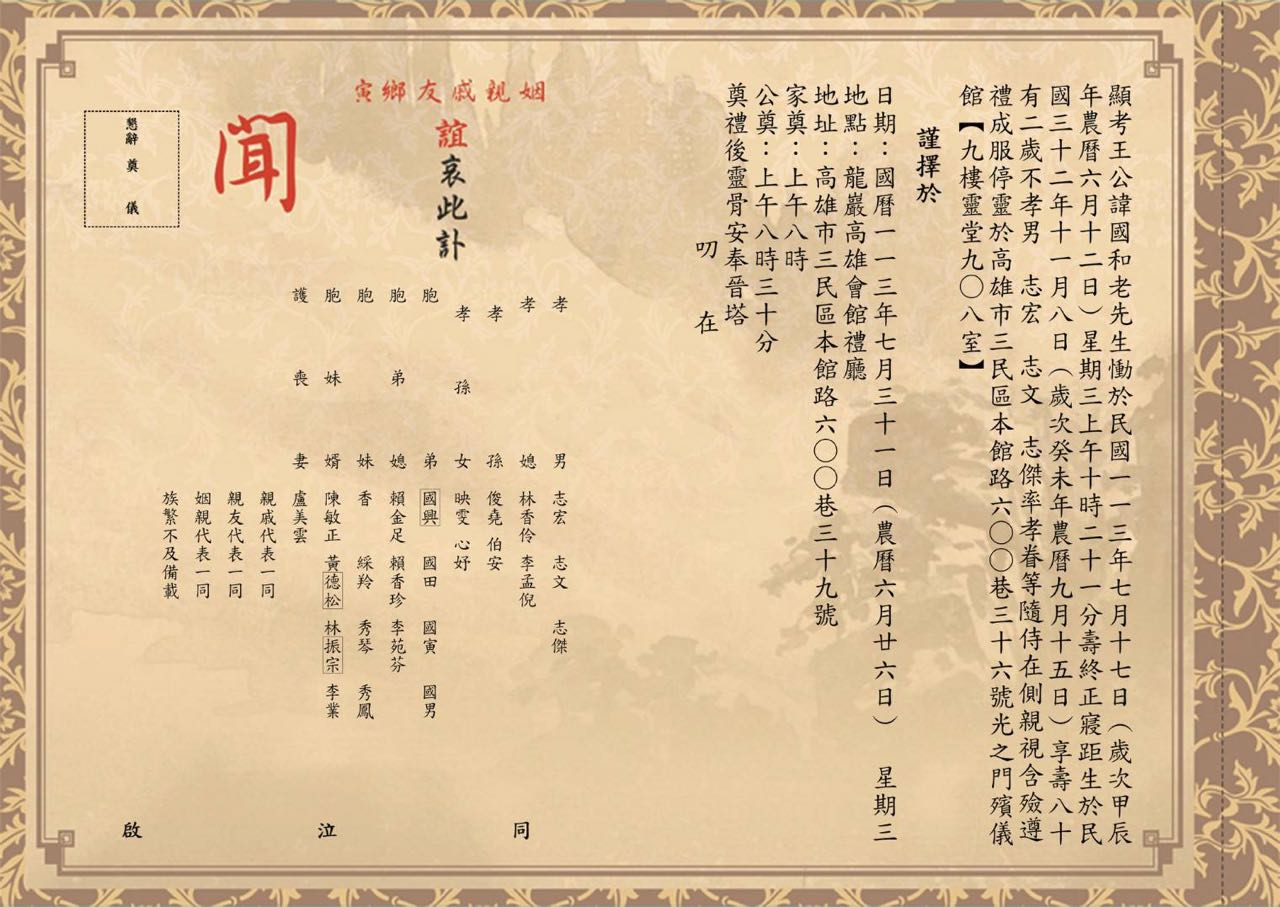 顯考王公諱國和老先生慟於民國一一三年七月十七日（歲次甲辰
年農曆六月十二日）星期三上午十時二十一分壽終正寢距生於民
國三十二年十一月八日（歲次癸未年農曆九月十五日）享壽八十
有二歲不孝男 志宏 志文 志傑率孝眷等隨侍在側親視含殮遵
禮成服停靈於高雄市三民區本館路六〇〇巷三十六號光之門殯儀
館【九樓靈堂九〇八室】
謹擇於
日期：國曆一一三年七月三十一日（農曆六月廿六日） 星期三
地點：龍巖高雄會館禮廳
地址：高雄市三民區本館路六〇〇巷三十九號
家奠：上午八時
公奠：上午八時三十分
奠禮後靈骨安奉晉塔
叨在
寅鄉友戚親姻
誼哀此訃
聞
孝男 志宏 志文 志傑
孝媳 林香伶 李孟倪
孝孫 俊堯 伯安
孝孫女 映雯 心妤
胞弟 國興 國田 國寅 國男
胞弟媳 賴金足 賴香珍 李苑芬
胞妹 香 綵羚 秀琴 秀鳳
胞妹婿 陳敏正 黃德松 林振宗 李業
護喪妻 盧美雲
親戚代表一同
親友代表一同
姻親代表一同
族繁不及備載
同泣啟
懇辭 奠儀